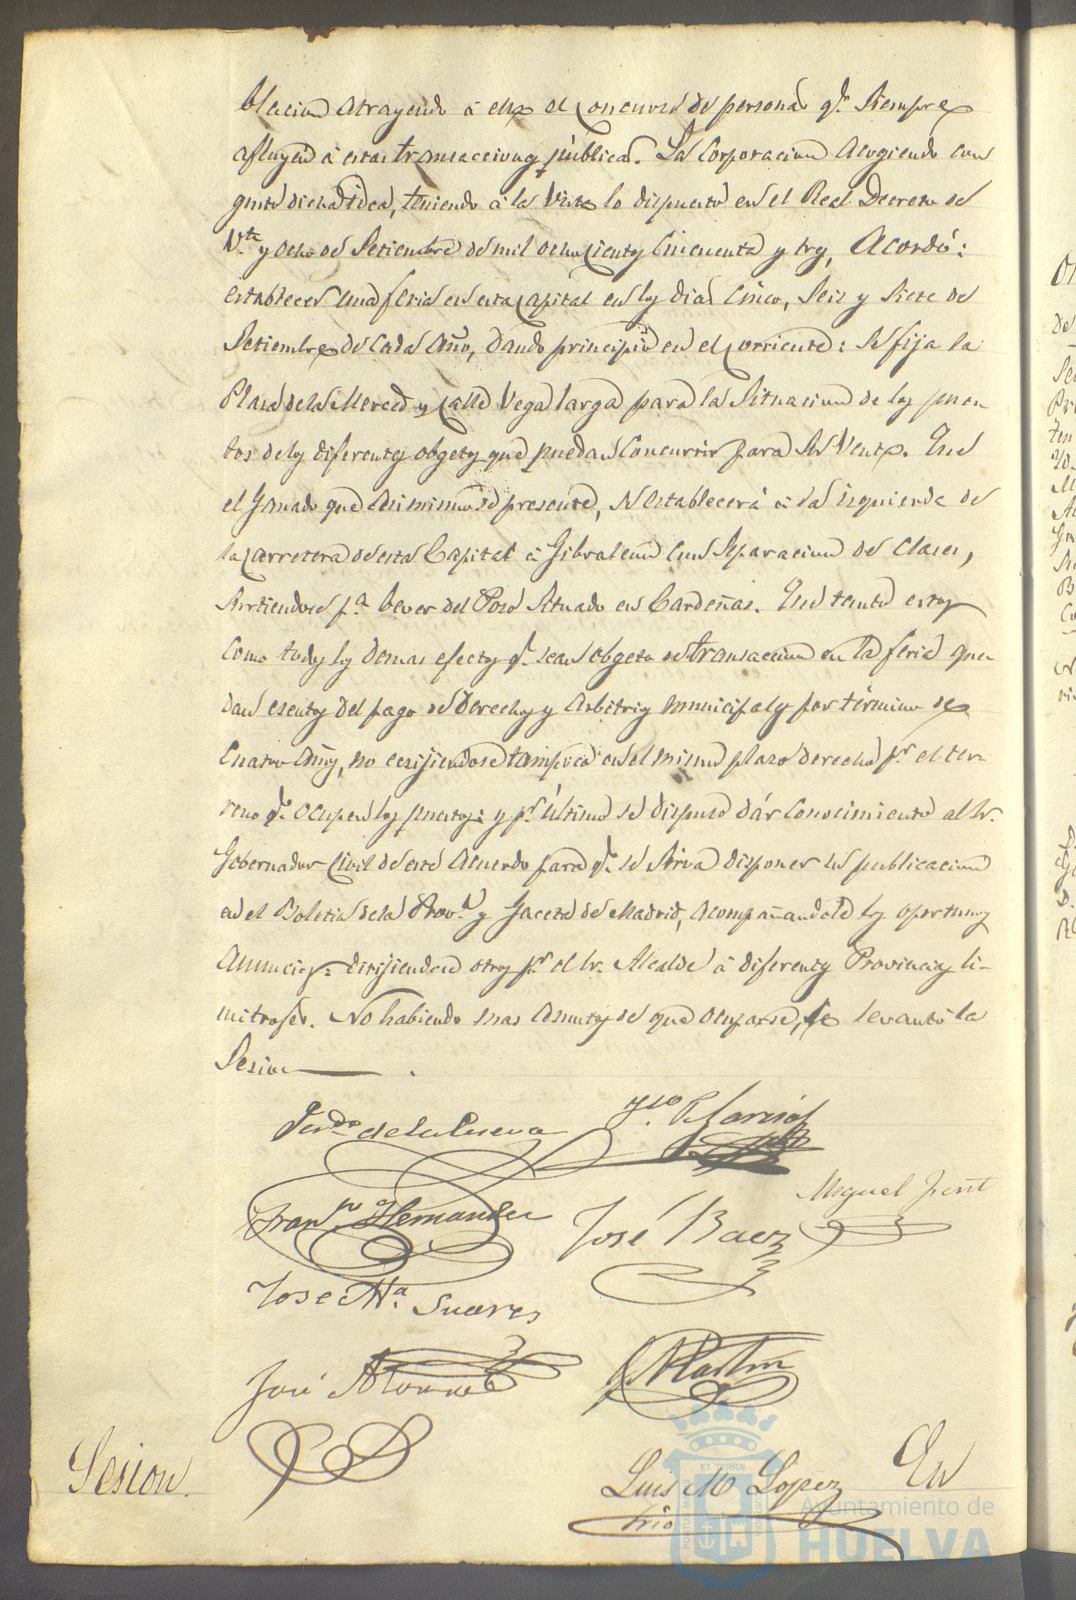 blacion atrayendo á ella el concurso de personas qe. siempre
afluyen á estas transacciones públicas. La Corporacion acogiendo con
gusto dicha idea, teniendo á la vista lo dispuesto en el Real Decreto de
Vte. y ocho de Setiembre de mil ochocientos cincuenta y tres, Acordó:
establecer una feria en esta Capital en los dias cinco, seis y siete de
Setiembre de cada año, dando principio en el corriente: se fija la
Plaza de la Merced y calle Vega larga para la situacion de los pues-
tos de los diferentes obgetos que puedan concurrir para su venta. Que
el ganado que asi mismo se presente, se establecerá á la izquierda de
la carretera de esta Capital á Gibraleon con separacion de clases,
surtiendose pa. bever del Pozo situado en Cardeñas. Que tanto estos
como todos los demas efectos qe. sean obgeto de transaccion en la feria que-
dan esentos del pago de derechos y arbitrios municipales por término de
cuatro años, no ecsijiendose tampoco en el mismo plazo derecho pr. el ter-
reno qe. ocupen los puestos: y pr. último se dispuso dár conocimiento al Sr.
Gobernador Civil de este acuerdo para qe. se sirva disponer su publicacion
en el Boletin de la Prova. y Gaceta de Madrid, acompañandole los oportunos
anuncios: dirijiendose otros pr. el Sr. Alcalde á diferentes Provincias li-
mitrofes. No habiendo mas asuntos de que ocuparse, se levantó la
Sesion
Ferdo. de la Cueva
Garcia
Miguel
Franco. Hernandez
José Baez
Jose Ma. Suares
José Alvarez
Martin
Sesion.
Luis M Lopez
En
Srio
ET TERRAE
Ayuntamiento de
HUELVA